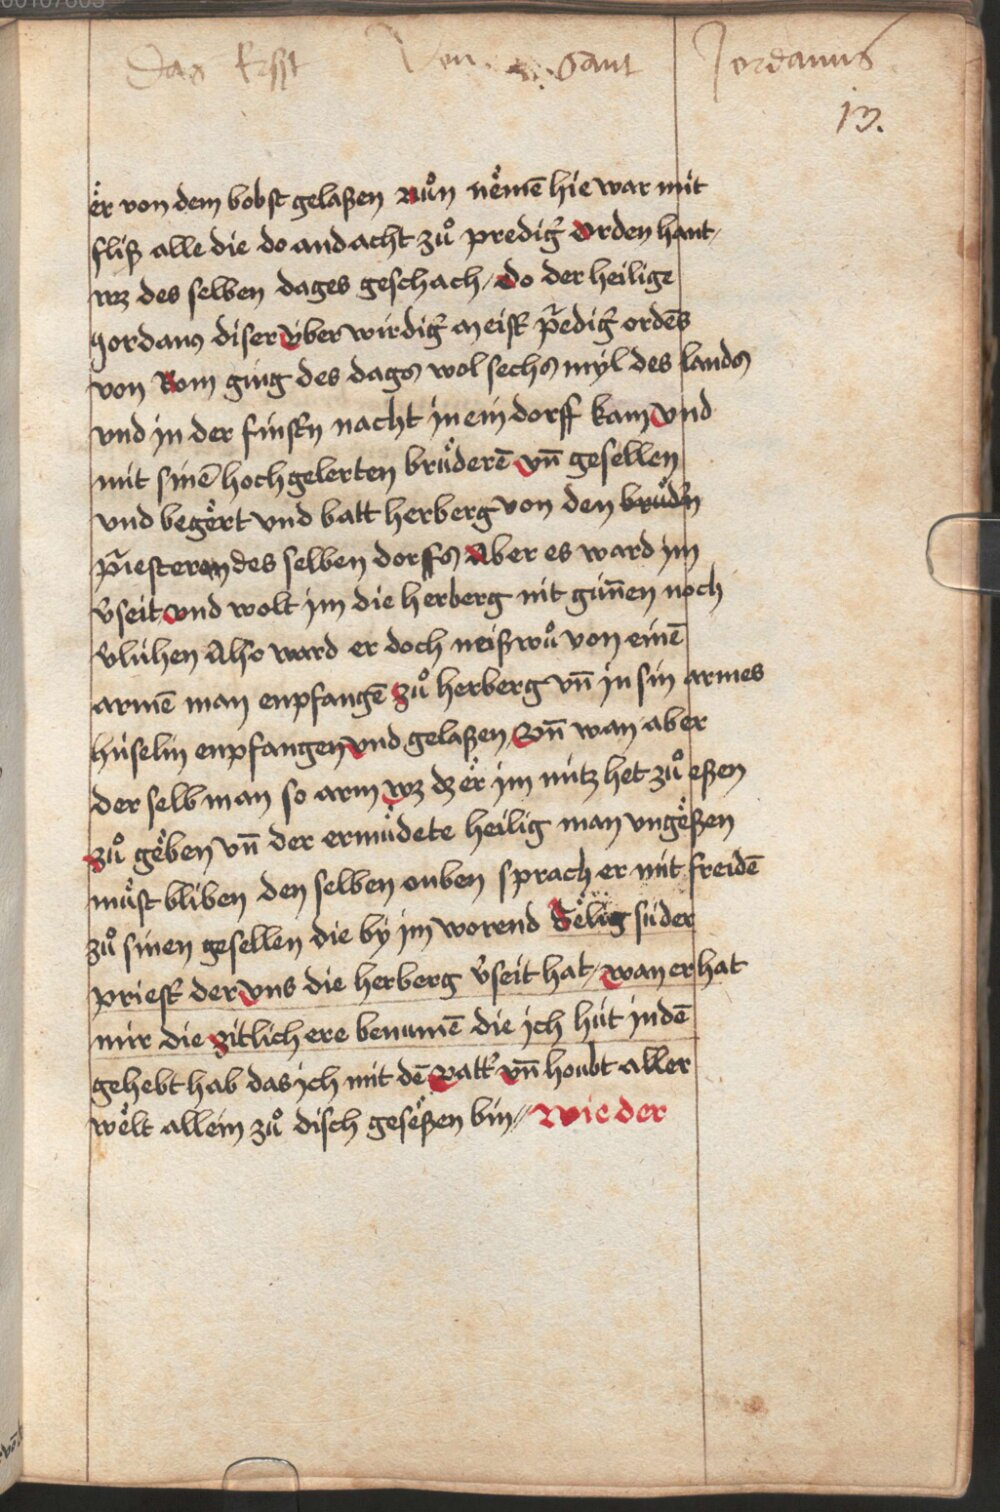 Das Erst Von S. Sant Jordanus
13.
er von dem bobst gelaßen Nuͦn nemē hie war mit
fliß alle die do andacht zuͦ predig̃ Orden hant
wz des selben dages geschach / do der heilige
Jordanꝰ diser über wirdig̃ meist̃ p̃edig̃ ordēs
von Rom ging des dages wol sechs myl des landes
vnd in der finst̃n nacht in ein dorff kam vnd
mit sinē hochgelerten bruͤderē vn̄ gesellen
vnd begert vnd batt herberg von den bruͤdn̄
p̃iesteren des selben dorffs Aber es ward im
v̄seit vnd wolt im die herberg nit gūnen noch
v̄lühen Also ward er doch neißwuͦ von einē
armē man enpfangē Zuͦ herberg vn̄ in sin armes
hüselin enpfangen vnd gelaßen Vn̄ wan aber
der selb man so arm wz dz er im nütz het zuͦ eßen
zuͦ geben vn̄ der ermuͤdete heilig man vngeßen
muͤst bliben den selben ouben sprach er mit freidē
zuͦ sinen gesellen die by im worend Selig sü der
priest̃ der vns die herberg v̄seit hat / wan er hat
mir die zitlich ere benumē die ich hüt in dē
gehebt hab das ich mit dē vatt̃ vn̄ houbt aller
welt allein zuͦ disch geseßen bin // Wie der